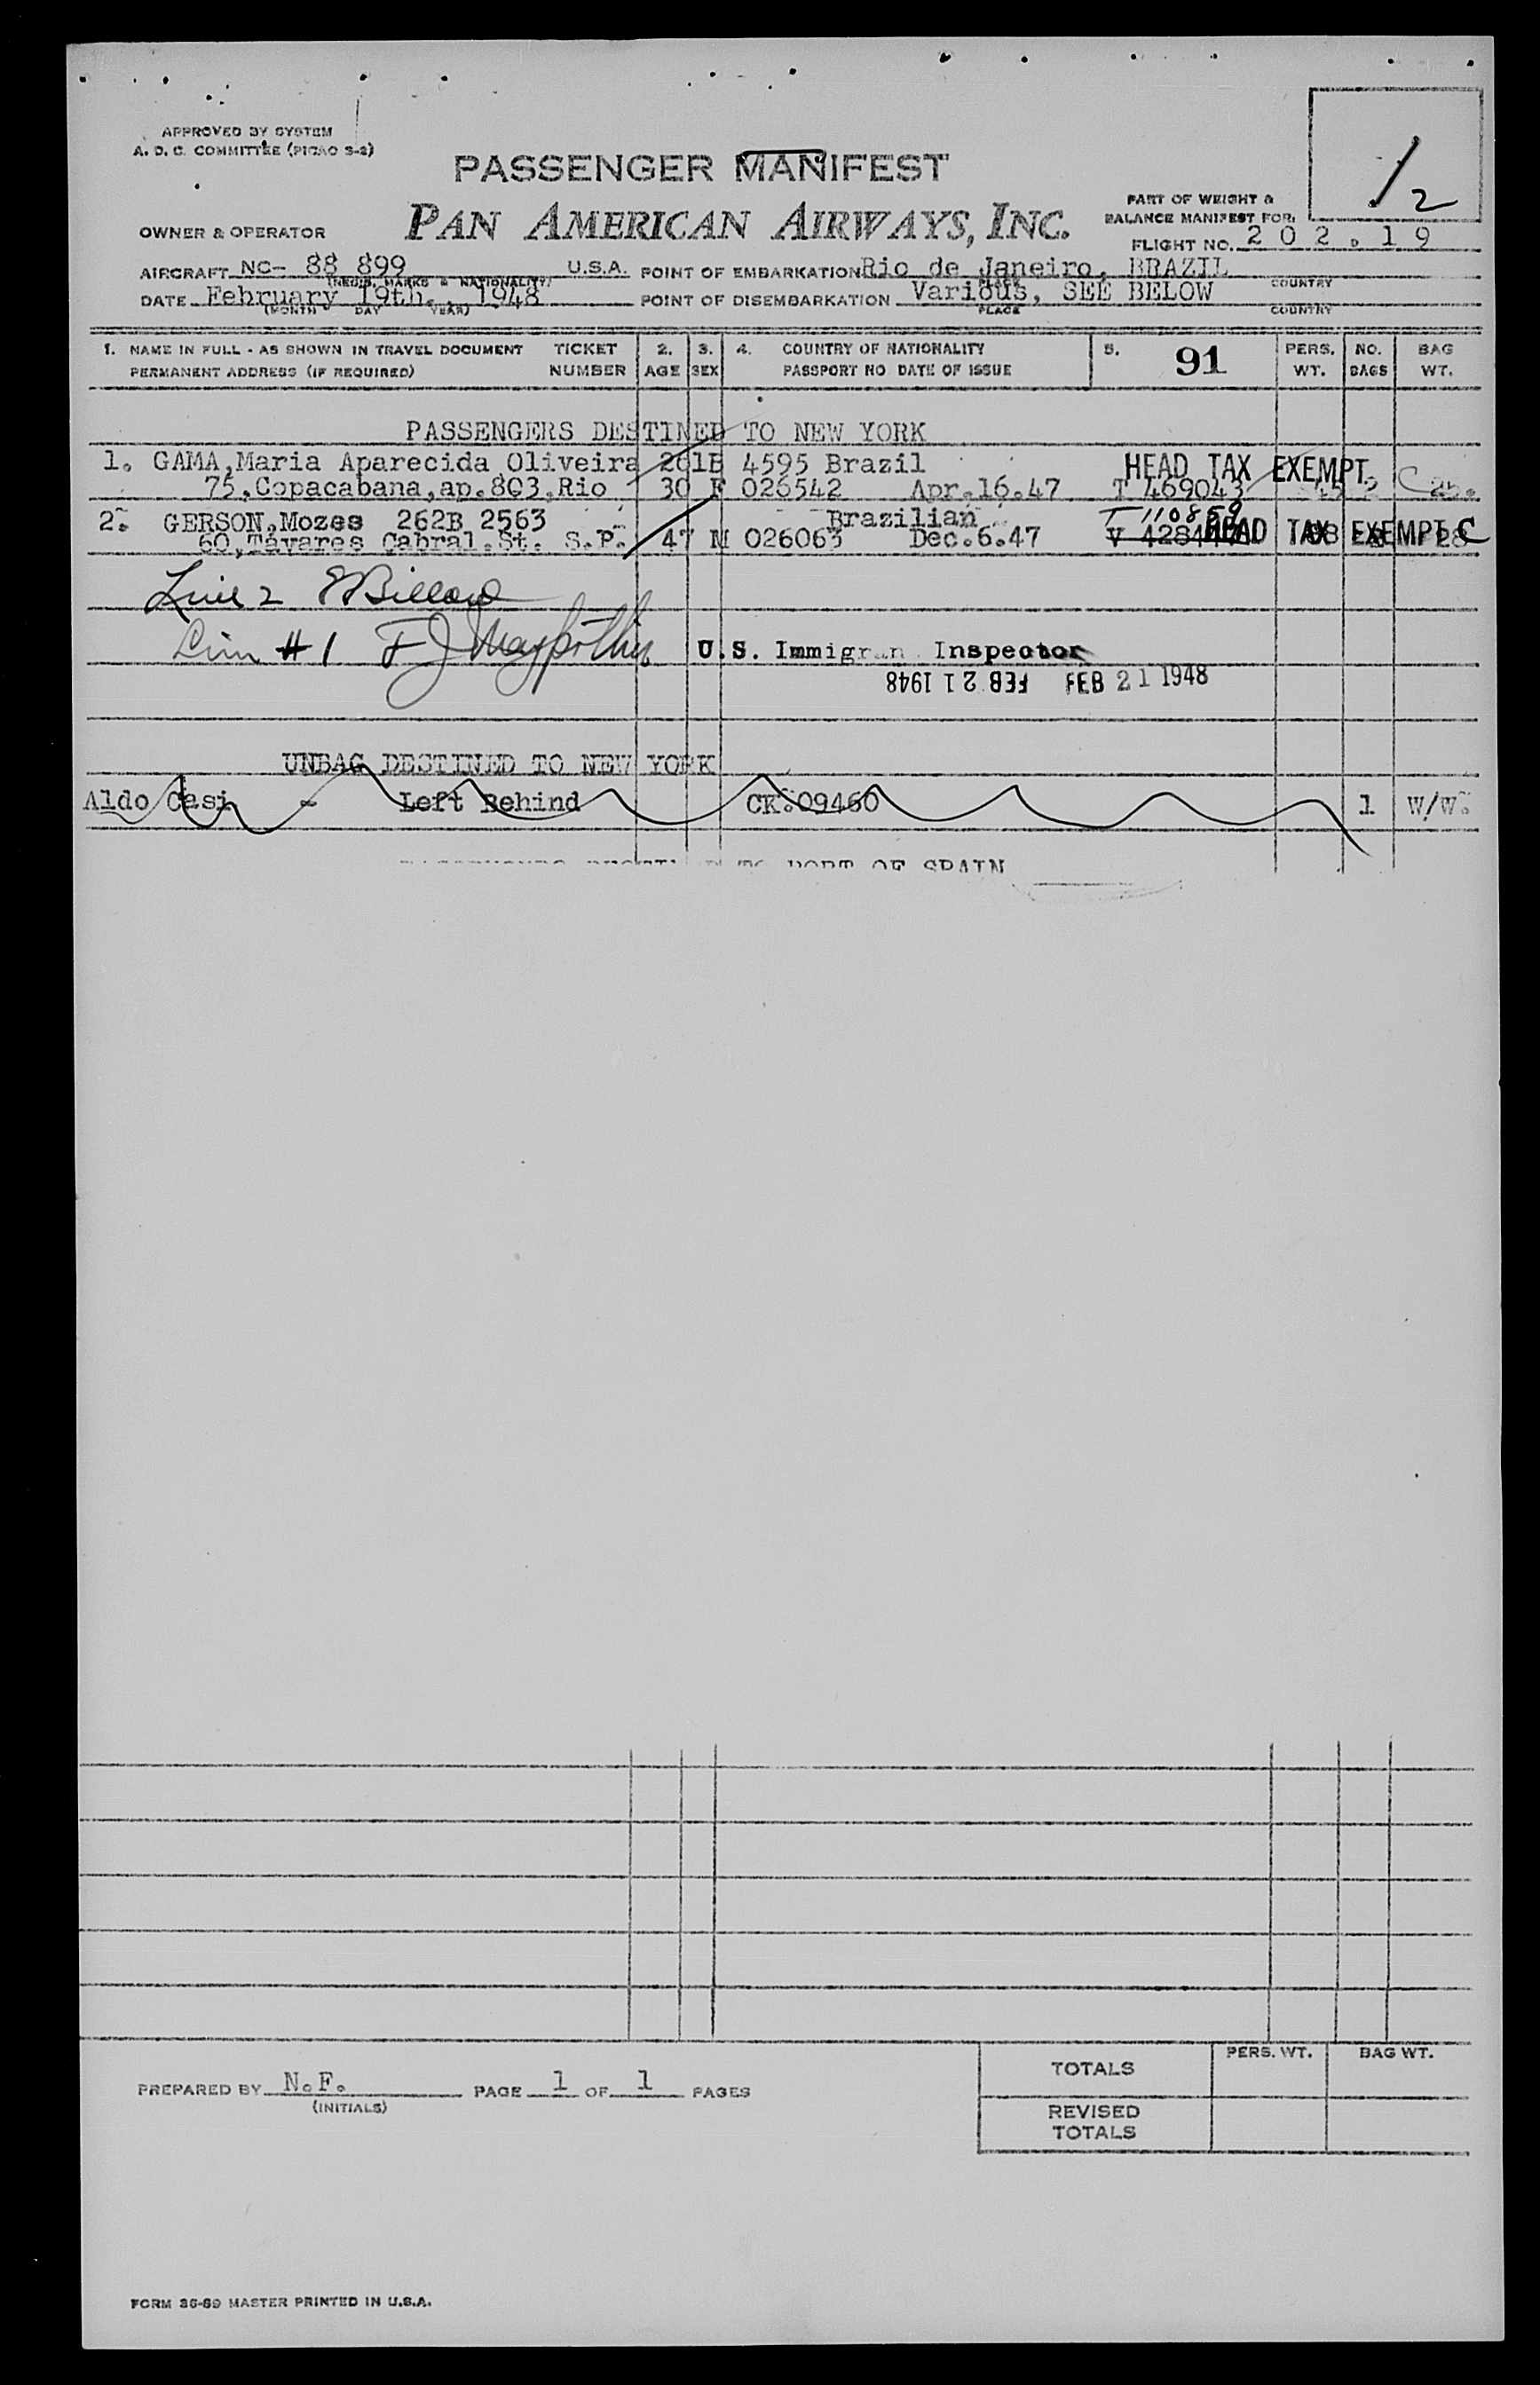 APPROVED BY SYSTEM
A. D. C. COMMITTEE (PICAO S-2)
1/2
PASSENGER MANIFEST
PAN AMERICAN AIRWAYS, INC.
PART OF WEIGHT &
BALANCE MANIFEST FOR:
OWNER & OPERATOR
FLIGHT NO. 202.19
AIRCRAFT NC- 88 899 U.S.A. POINT OF EMBARKATION Rio de Janeiro, BRAZIL
(REGIS. MARKS & NATIONALITY) PLACE COUNTRY
DATE February 19th., 1948 POINT OF DISEMBARKATION Various, SEE BELOW
(MONTH DAY YEAR) PLACE COUNTRY
1. NAME IN FULL - AS SHOWN IN TRAVEL DOCUMENT TICKET 2. 3. 4. COUNTRY OF NATIONALITY 5. 91 PERS. NO. BAG
PERMANENT ADDRESS (IF REQUIRED) NUMBER AGE SEX PASSPORT NO DATE OF ISSUE WT. BAGS WT.
PASSENGERS DESTINED TO NEW YORK
1. GAMA,Maria Aparecida Oliveira 261B 4595 Brazil HEAD TAX EXEMPT
75,Copacabana,ap.803,Rio 30 F 026542 Apr.16.47 T 469043 C
2. GERSON,Mozes 262B 2563 Brazilian T 110859
60,Tavares Cabral.St. S.P. 47 M 026063 Dec.6.47 HEAD TAX EXEMPT C
Line 2
#1
U.S. Immigran Inspector
FEB 21 1948 FEB 21 1948
UNBAG DESTINED TO NEW YORK
Aldo Casi - Left Behind CK.09460 1 W/W.
TO PORT OF SPAIN
PREPARED BY N.F. PAGE 1 OF 1 PAGES
(INITIALS)
TOTALS PERS. WT. BAG WT.
REVISED
TOTALS
FORM 36-89 MASTER PRINTED IN U.S.A.